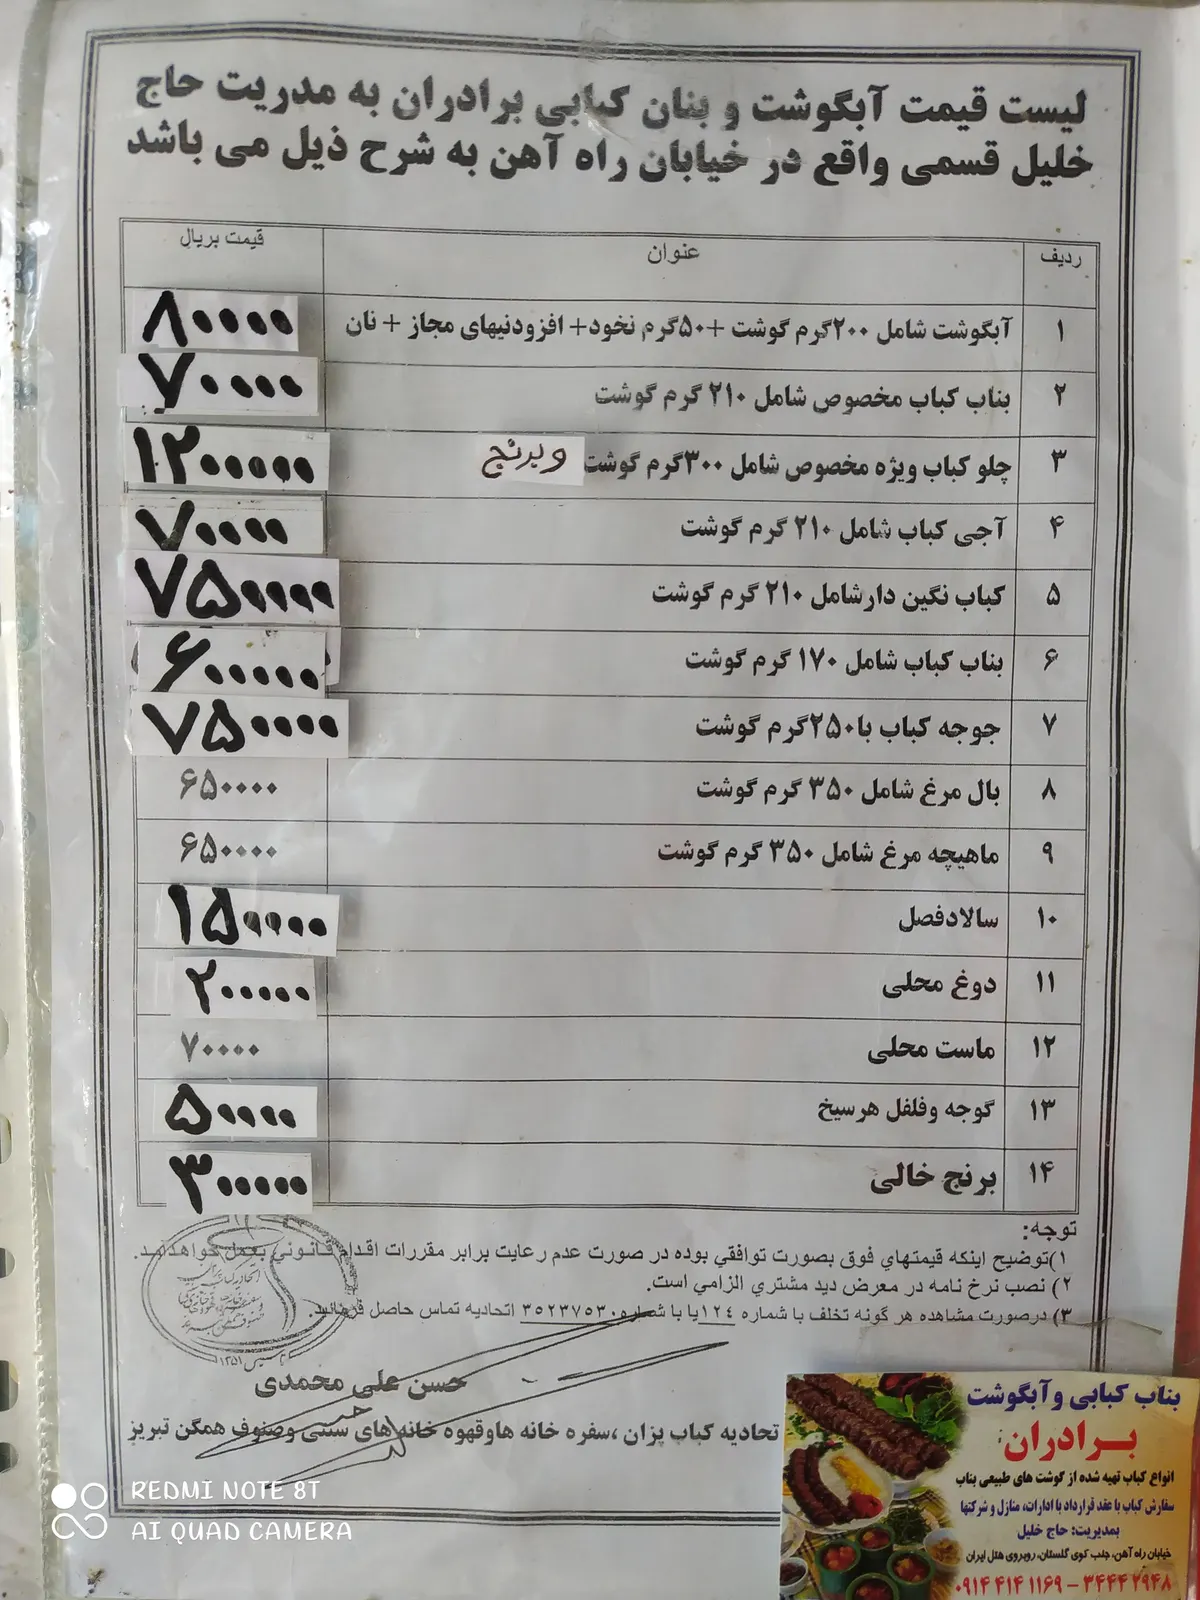 لیست قیمت آبگوشت و بنان کبابی برادران به مدریت حاج
خلیل قسمی واقع در خیابان راه آهن به شرح ذیل می باشد
ردیف عنوان قیمت بریال
۱ آبگوشت شامل ۲۰۰گرم گوشت +۵۰گرم نخود+ افزودنیهای مجاز + نان ۸۰۰۰۰۰
۲ بناب کباب مخصوص شامل ۲۱۰ گرم گوشت ۷۰۰۰۰۰
۳ چلو کباب ویژه مخصوص شامل ۳۰۰گرم گوشت و برنج ۱۲۰۰۰۰۰۰
۴ آجی کباب شامل ۲۱۰ گرم گوشت ۷۰۰۰۰۰
۵ کباب نگین دارشامل ۲۱۰ گرم گوشت ۷۵۰۰۰۰۰
۶ بناب کباب شامل ۱۷۰ گرم گوشت ۶۰۰۰۰۰
۷ جوجه کباب با۲۵۰گرم گوشت ۷۵۰۰۰۰
۸ بال مرغ شامل ۳۵۰ گرم گوشت ۶۵۰۰۰۰
۹ ماهیچه مرغ شامل ۳۵۰ گرم گوشت ۶۵۰۰۰۰
۱۰ سالادفصل ۱۵۰۰۰۰۰
۱۱ دوغ محلی ۲۰۰۰۰۰
۱۲ ماست محلی ۷۰۰۰۰
۱۳ گوجه وفلفل هرسیخ ۵۰۰۰۰
۱۴ برنج خالی ۳۰۰۰۰۰
توجه:
۱)توضیح اینکه قیمتهاي فوق بصورت توافقي بوده در صورت عدم رعایت برابر مقررات اقدام قانوني بعمل خواهدآمد.
۲) نصب نرخ نامه در معرض دید مشتري الزامي است.
۳) درصورت مشاهده هر گونه تخلف با شماره ۱۲۴یا با شماره ۳۵۲۳۷۵۳۰ اتحادیه تماس حاصل فرمائید.
تاسیس ۱۳۵۱
حسن علی محمدی
تحادیه کباب پزان ،سفره خانه هاوقهوه خانه های سنتی وصنوف همگن تبریز
بناب کبابی و آبگوشت
بـرادران
انواع کباب تهیه شده از گوشت های طبیعی بناب
سفارش کباب با عقد قرارداد با ادارات، منازل و شرکتها
بمدیریت: حاج خلیل
خیابان راه آهن، جنب کوی گلستان، روبروی هتل ایران
۰۹۱۴ ۴۱۴ ۱۱۶۹ – ۳۴۴۴ ۲۹۴۸
REDMI NOTE 8T
AI QUAD CAMERA